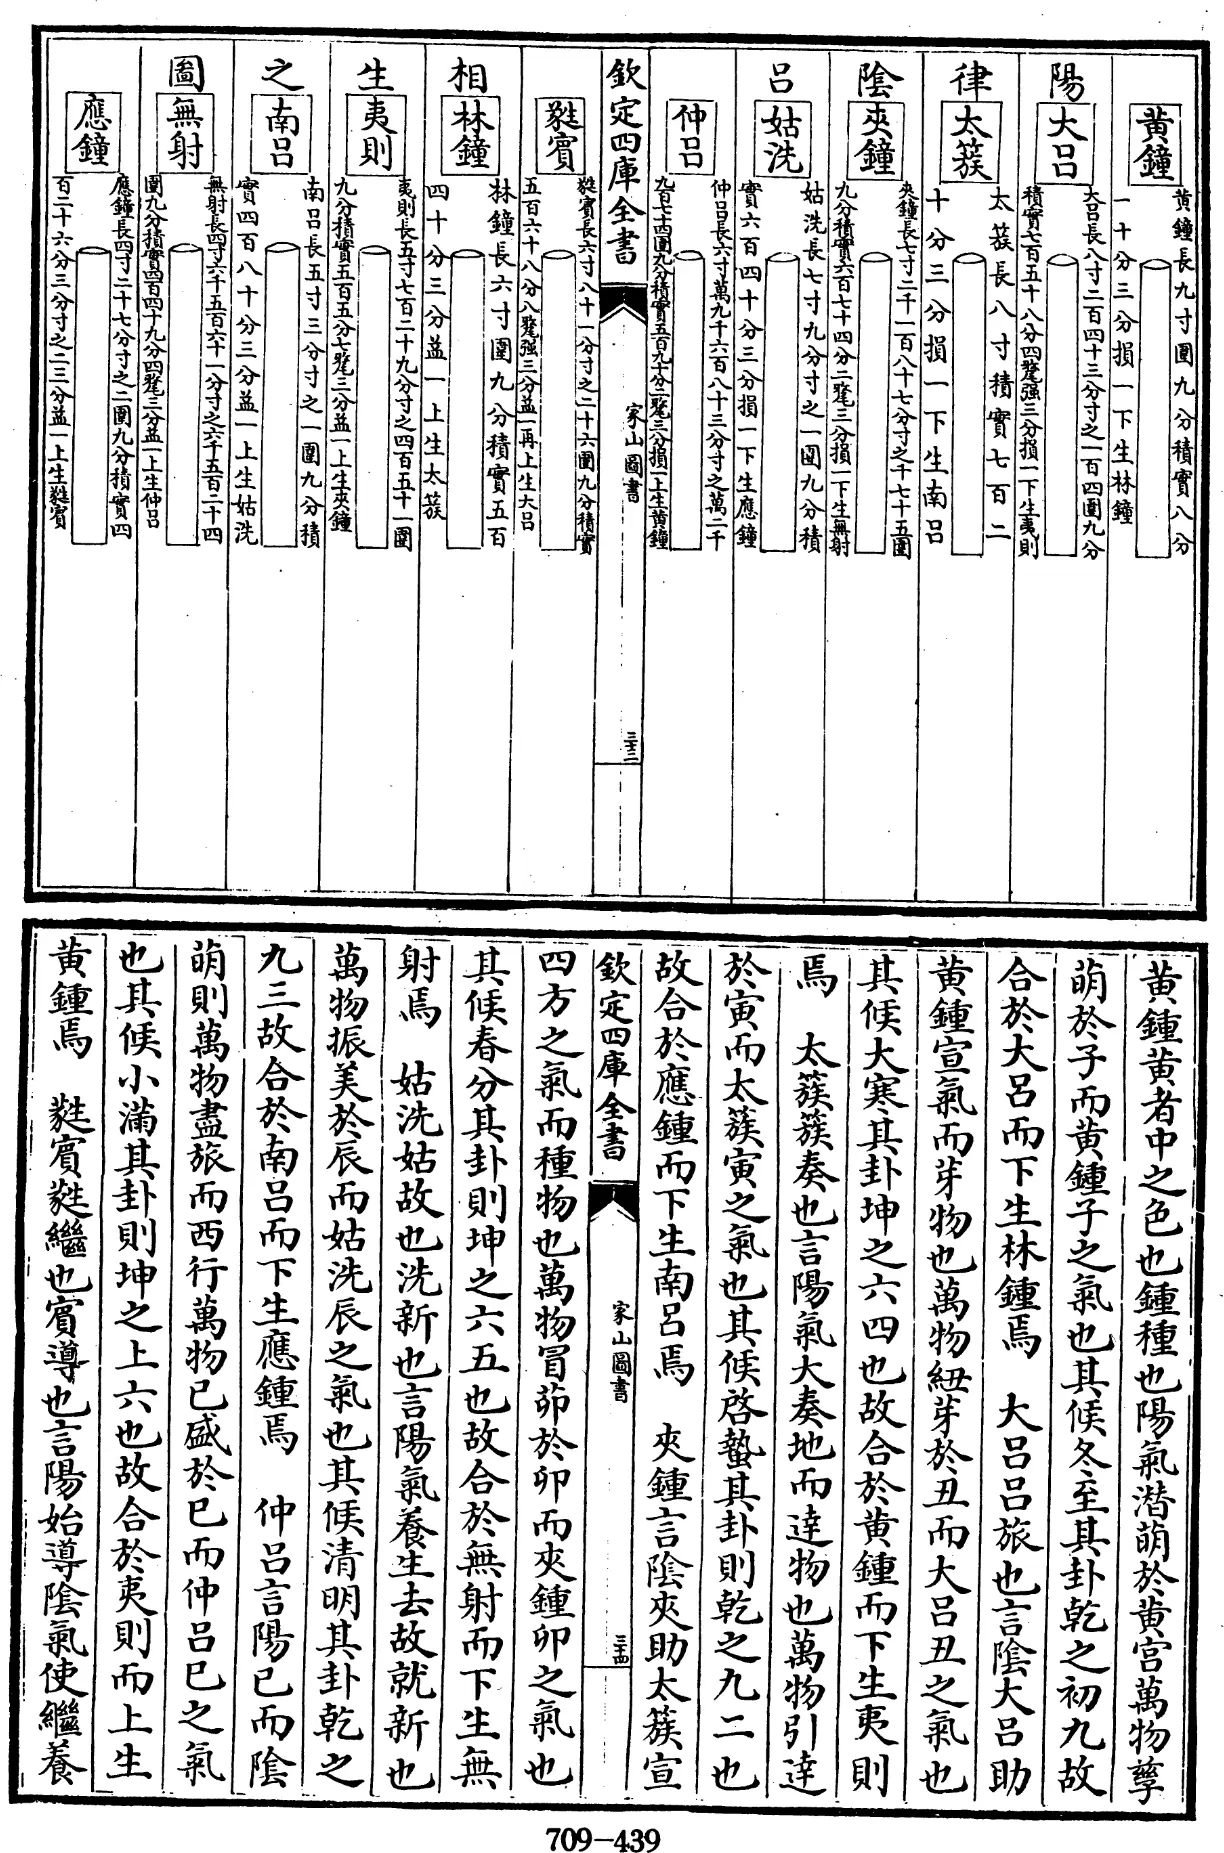 陽律陰呂相生之圖
黃鐘
黃鐘長九寸圍九分積實八分
一十分三分損一下生林鐘
大呂
大呂長八寸二百四十三分寸之一百四圍九分
積實七百五十八分四釐强三分損一下生夷則
太蔟
太蔟長八寸積實七百二
十分三分損一下生南呂
夾鐘
夾鐘長七寸二千一百八十七分寸之千七十五圍
九分積實六百七十四分二釐三分損一下生無射
姑洗
姑洗長七寸九分寸之一圍九分積
實六百四十分三分損一下生應鐘
仲呂
仲呂長六寸萬九千六百八十三分寸之萬二千
九百七十四圍九分積實五百九十分二釐三分損一上生黃鐘
欽定四庫全書
家山圖書
三十三
蕤賓
蕤賓長六寸八十一分寸之二十六圍九分積實
五百六十八分八釐强三分益一再上生大呂
林鐘
林鐘長六寸圍九分積實五百
四十分三分益一上生太蔟
夷則
夷則長五寸七百二十九分寸之四百五十一圍
九分積實五百五分七釐三分益一上生夾鐘
南呂
南呂長五寸三分寸之一圍九分積
實四百八十分三分益一上生姑洗
無射
無射長四寸六千五百六十一分寸之六千五百二十四
圍九分積實四百四十九分四釐三分益一上生仲呂
應鐘
應鐘長四寸二十七分寸之二圍九分積實四
百二十六分三分寸之二三分益一上生蕤賓
黃鍾黃者中之色也鍾種也陽氣潛萌於黃宮萬物孳
萌於子而黃鍾子之氣也其候冬至其卦乾之初九故
合於大呂而下生林鍾焉　大呂呂旅也言陰大呂助
黃鍾宣氣而芽物也萬物紐芽於丑而大呂丑之氣也
其候大寒其卦坤之六四也故合於黃鍾而下生夷則
焉　太蔟蔟奏也言陽氣大奏地而達物也萬物引達
於寅而太蔟寅之氣也其候啓蟄其卦則乾之九二也
故合於應鍾而下生南呂焉　夾鍾言陰夾助太蔟宣
欽定四庫全書
家山圖書
三十四
四方之氣而種物也萬物冒茆於卯而夾鍾卯之氣也
其候春分其卦則坤之六五也故合於無射而下生無
射焉　姑洗姑故也洗新也言陽氣養生去故就新也
萬物振美於辰而姑洗辰之氣也其候清明其卦乾之
九三故合於南呂而下生應鍾焉　仲呂言陽已而陰
萌則萬物盡旅而西行萬物已盛於巳而仲呂巳之氣
也其候小滿其卦則坤之上六也故合於夷則而上生
黃鍾焉　蕤賓蕤繼也賓導也言陽始導陰氣使繼養
709-439